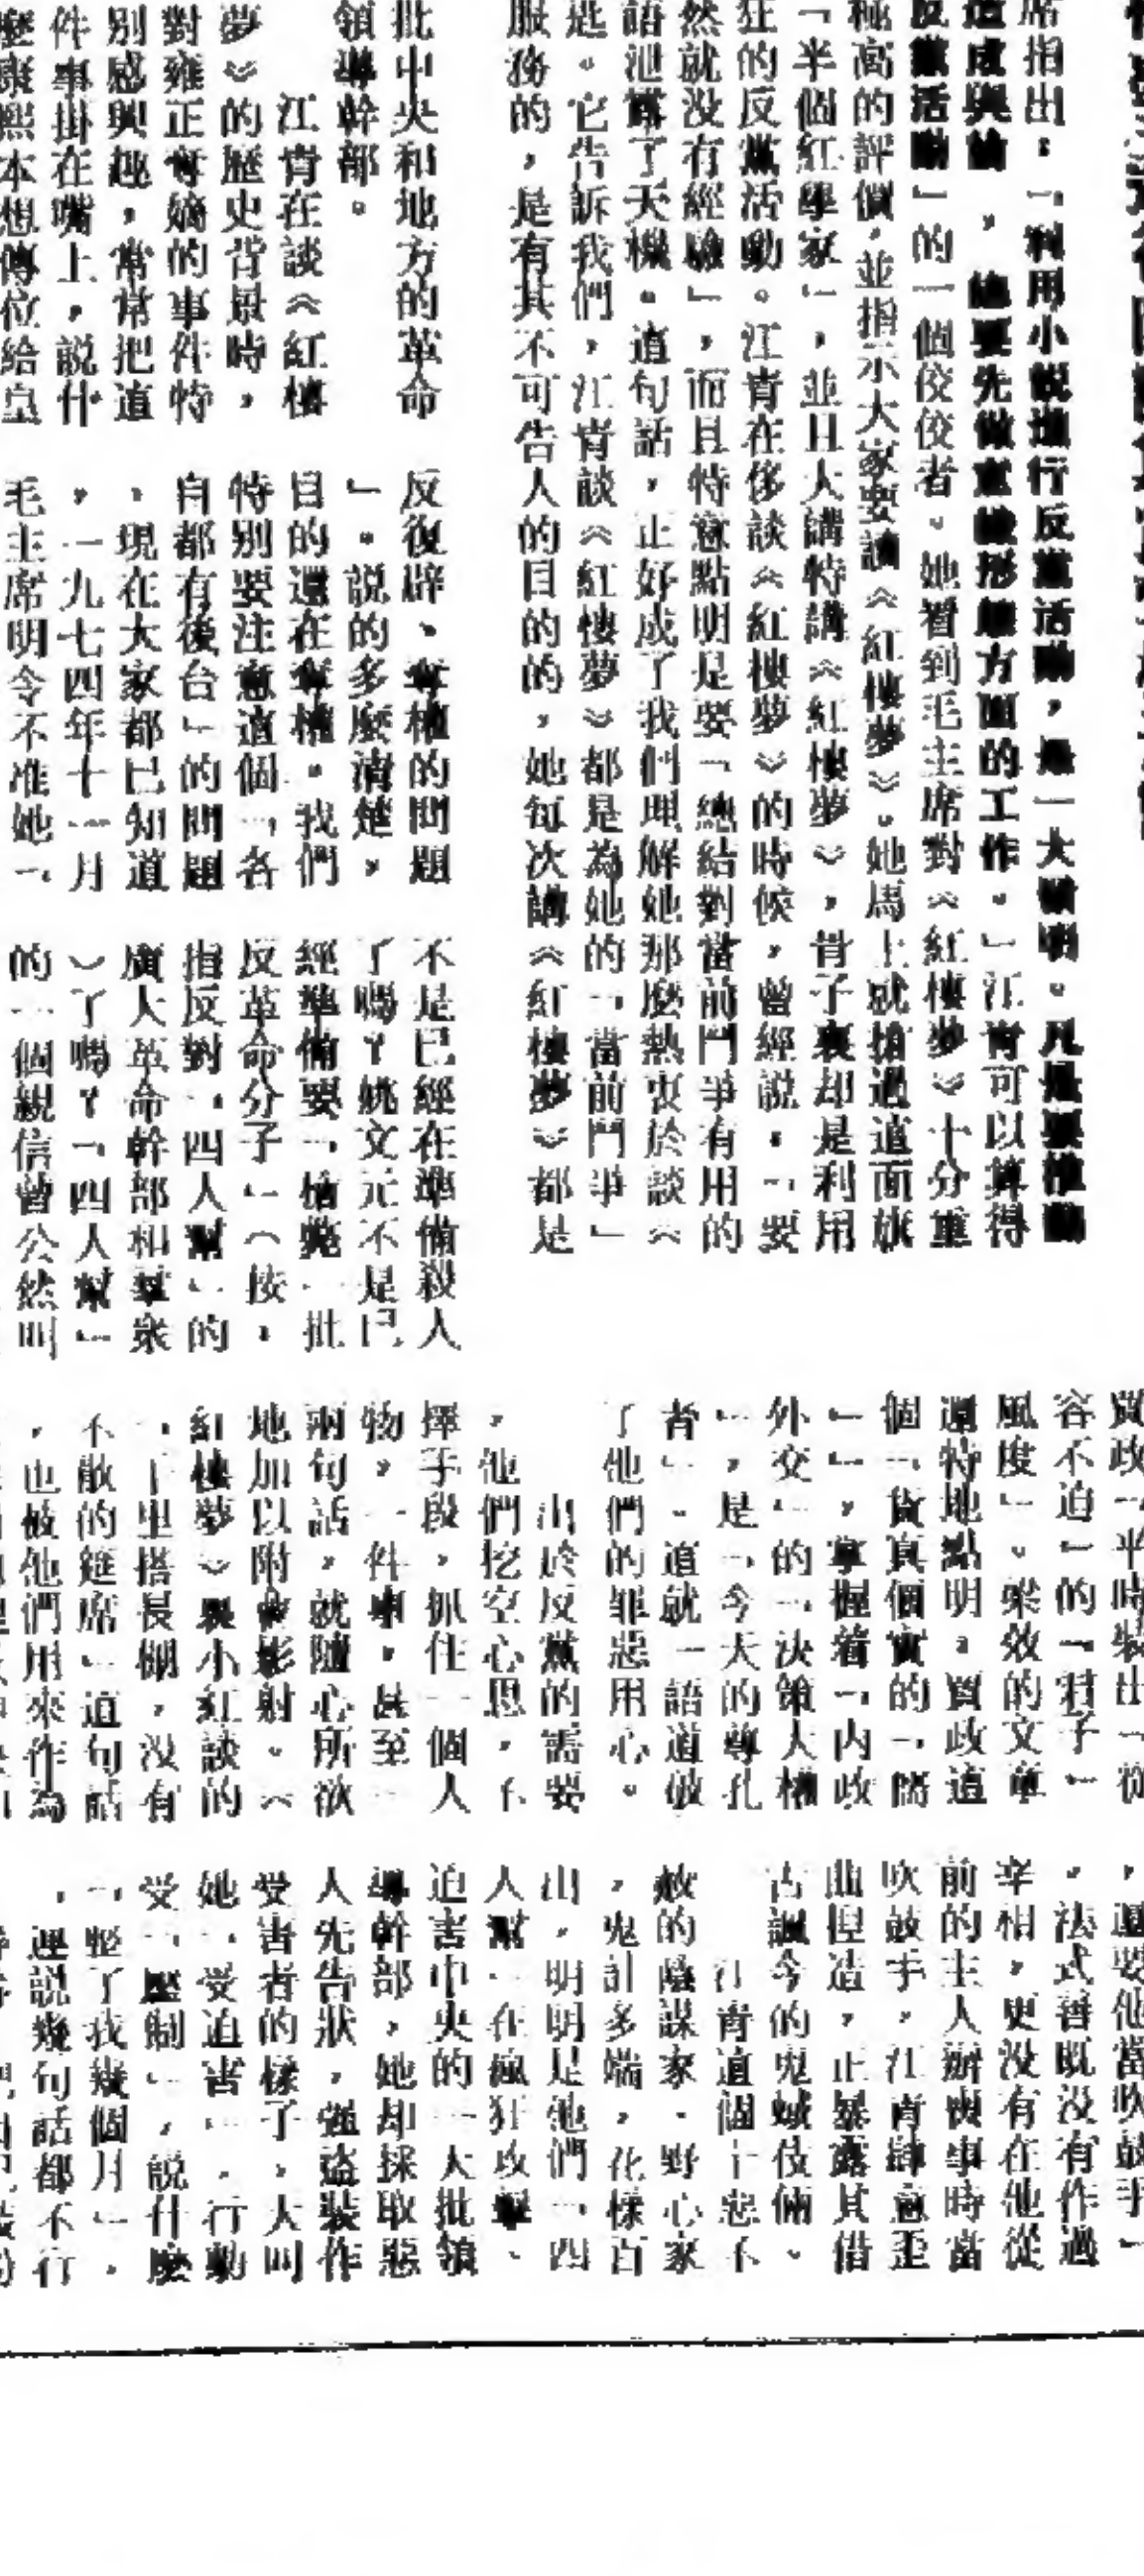 席指出：「利用小説進行反黨活動，是一大發明。凡是要推翻
造成輿論，總要先做意識形態方面的工作。」江青可以算得
反黨活動」的一個佼佼者。她看到毛主席對《紅樓夢》十分重
極高的評價，並指示大家要讀《紅樓夢》。她馬上就搶過這面旗
「半個紅學家」，並且大講特講《紅樓夢》，骨子裏却是利用
狂的反黨活動。江青在侈談《紅樓夢》的時候，曾經説，「要
然就没有經驗」，而且特意點明是要「總結對當前鬥爭有用的
語泄露了天機。這句話，正好成了我們理解她那麽熱衷於談《
匙。它告訴我們，江青談《紅樓夢》都是為她的「當前鬥爭」
服務的，是有其不可告人的目的的，她每次講《紅樓夢》都是
批中央和地方的革命
領導幹部。
江青在談《紅樓
夢》的歷史背景時，
對雍正奪嫡的事件特
别感興趣，常常把這
件事掛在嘴上，説什
麼康熙本想傳位給皇
反復辟、奪權的問題
」。説的多麼清楚，
目的還在奪權。我們
特别要注意這個「各
自都有後台」的問題
，現在大家都已知道
，一九七四年十一月
毛主席明令不准她「
不是已經在準備殺人
了嗎？姚文元不是已
經準備要「槍斃一批
反革命分子」（按，
指反對「四人幫」的
廣大革命幹部和羣衆
）了嗎？「四人幫」
的一個親信曾公然叫
賈政「平時裝出「從
容不迫」的「君子」
風度」。梁效的文章
還特地點明，賈政這
個「貨真價實的「儒
」」，掌握着「内政
外交」的「決策大權
」，是「今天的尊孔
者」。這就一語道破
了他們的罪惡用心。
出於反黨的需要
，他們挖空心思，不
擇手段，抓住一個人
物，一件事，甚至一
兩句話，就隨心所欲
地加以附會影射。《
紅樓夢》裏小紅談的
「千里搭長棚，没有
不散的筵席」這句話
，也被他們用來作為
，還要他當吹鼓手」
，法式善既没有作過
宰相，更没有在他從
前的主人辦喪事時當
吹鼓手，江青肆意歪
曲捏造，正暴露其借
古諷今的鬼蜮伎倆。
江青這個十惡不
赦的陰謀家、野心家
，鬼計多端，花樣百
出，明明是他們「四
人幫」在瘋狂攻擊、
迫害中央的一大批領
導幹部，她却採取惡
人先告狀，強盗裝作
受害者的樣子，大叫
她「受迫害」，行動
受「壓制」，説什麼
「整了我幾個月」，
，連説幾句話都不行